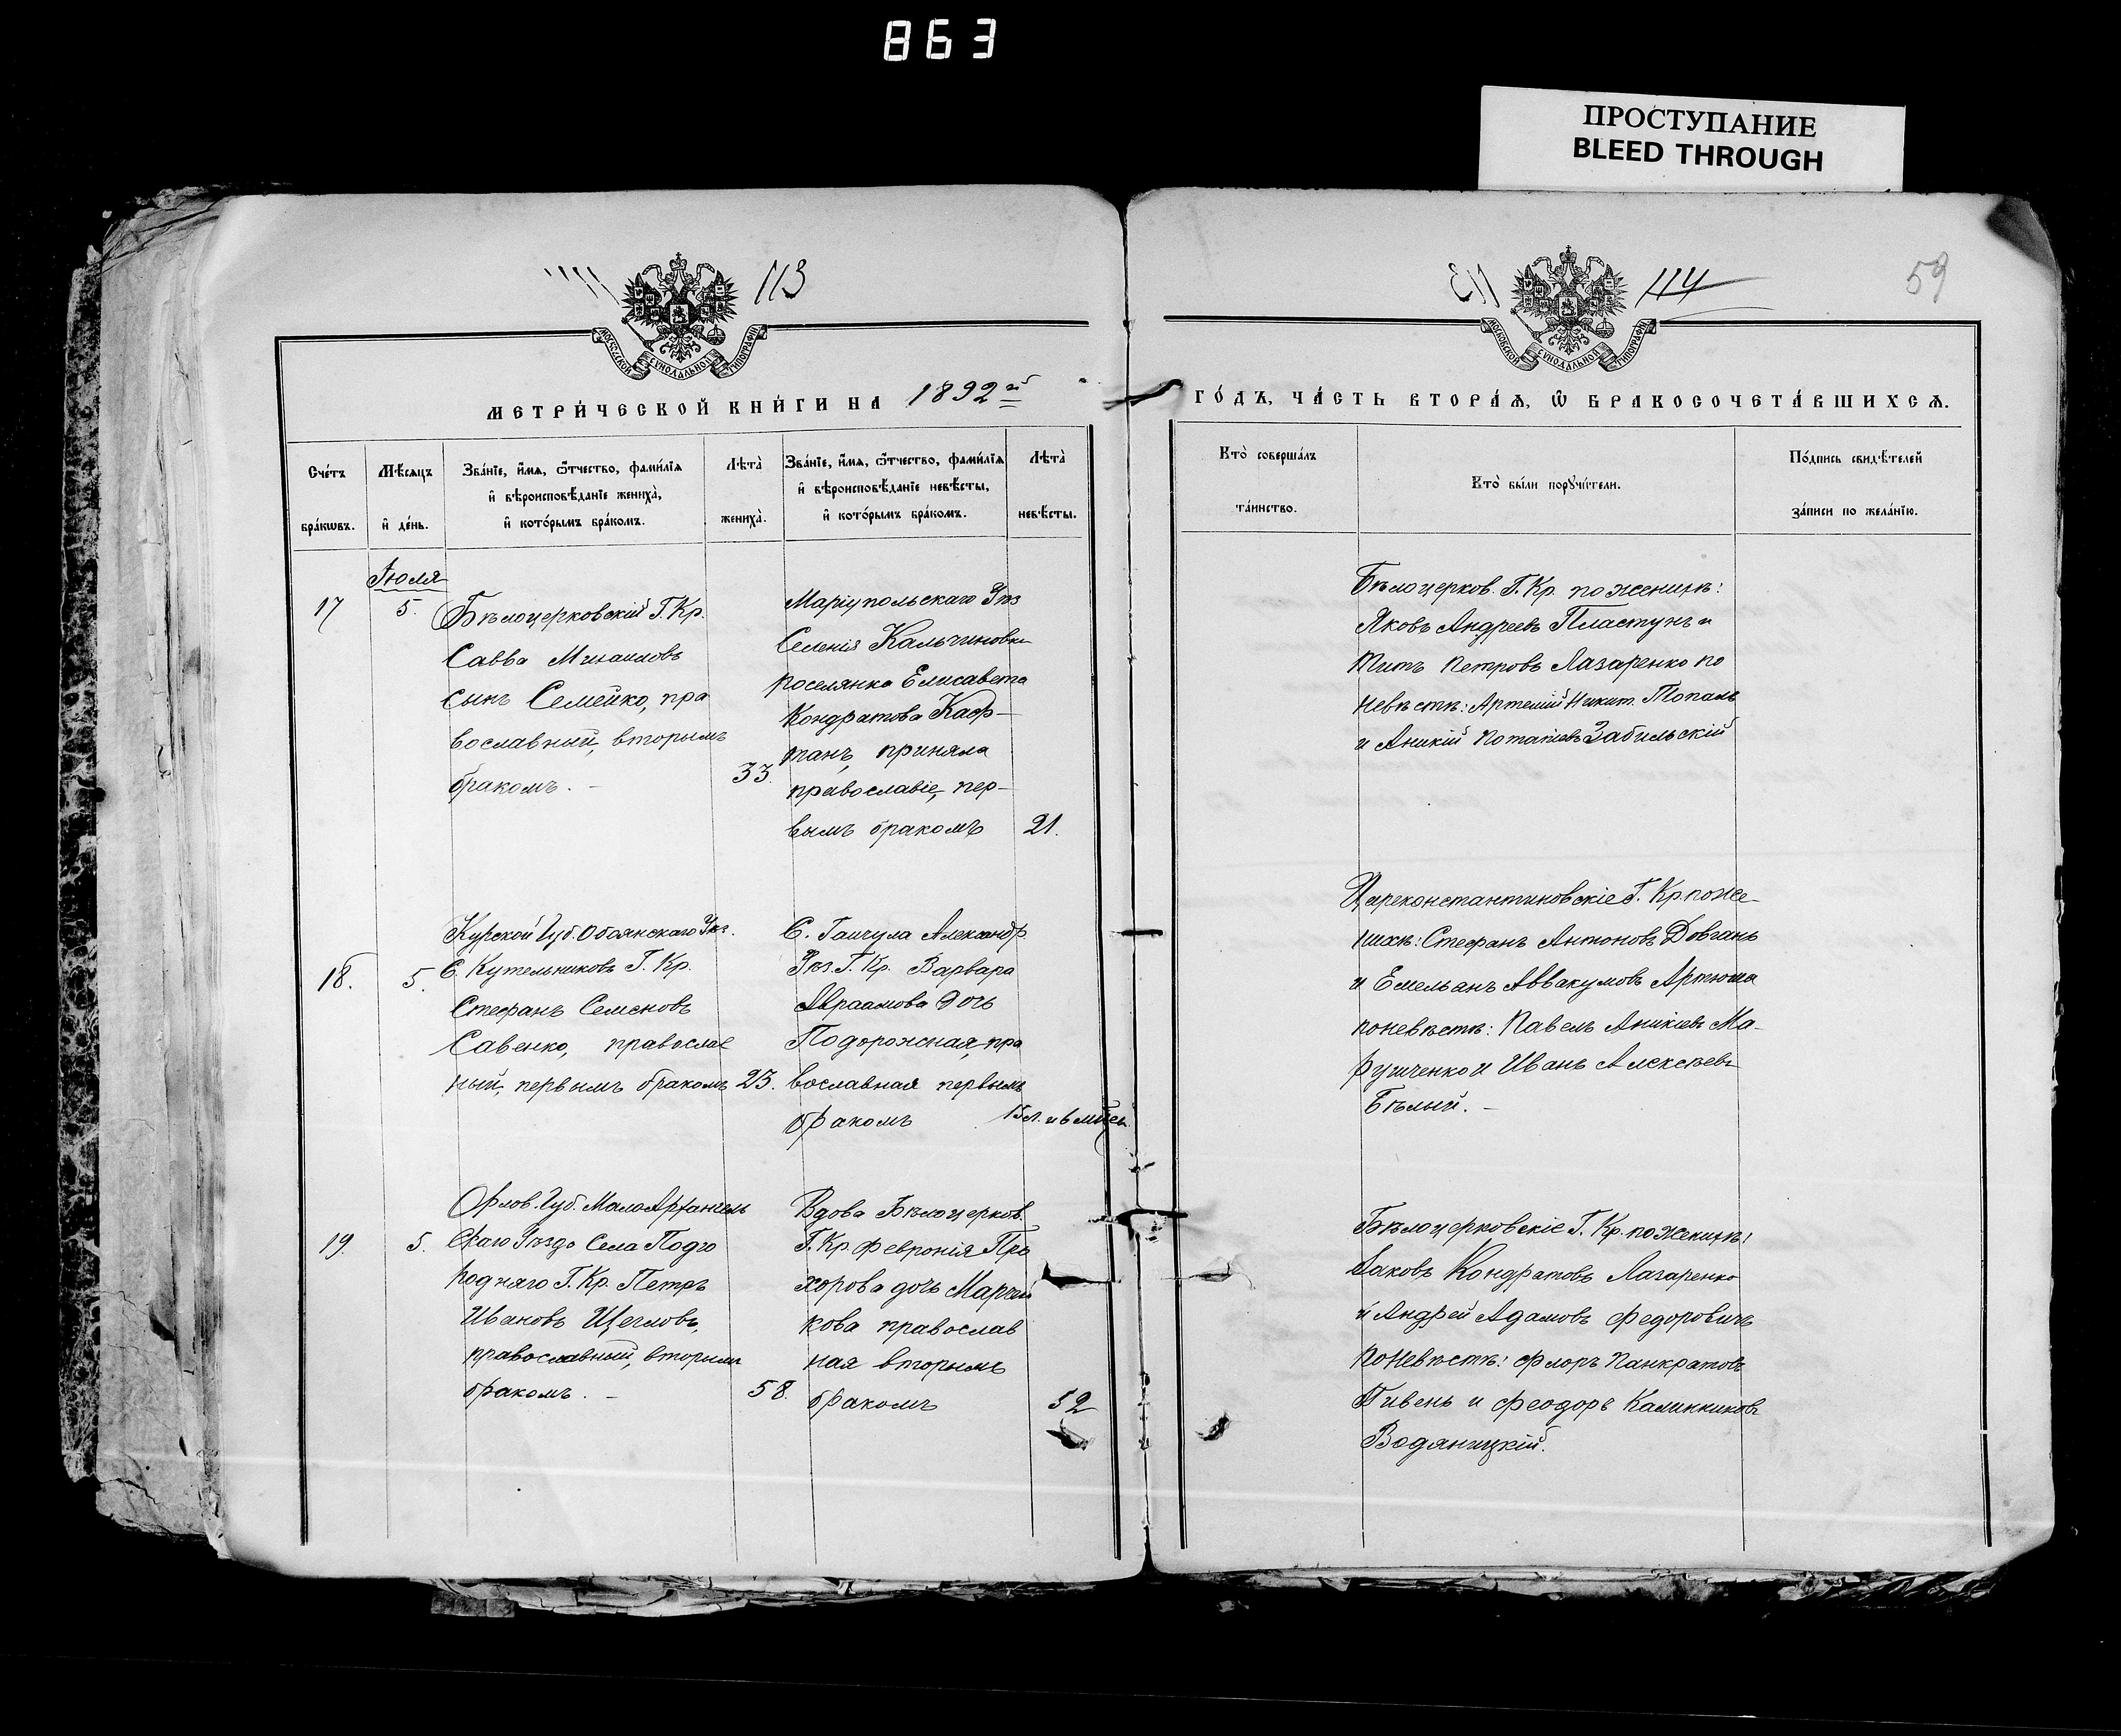 863
ПРОСТУПАНИЕ
BLEED THROUGH
113
114
59
МОСКОВСКОЙ СѴНОДАЛЬНОЙ ТИПОГРАФІИ
МОСКОВСКОЙ СѴНОДАЛЬНОЙ ТИПОГРАФІИ
МЕТРИ́ЧЕСКОЙ КНИ́ГИ НА 1892й
ГО́ДЪ, ЧА́СТЬ ВТОРА́Ѧ, Ѿ БРАКОСОЧЕТА́ВШИХСѦ.
Сче́тъ бра́кѡвъ.
Мѣ́сяцъ и҆ де́нь.
Зва́нїе, и҆́мѧ, ѻ҆́тчество, фами́лїѧ
и҆ вѣроисповѣ́данїе жениха̀,
и҆ кото́рымъ бра́комъ.
Лѣта̀ жениха̀.
Зва́нїе, и҆́мѧ, ѻ҆́тчество, фами́лїѧ
и҆ вѣроисповѣ́данїе невѣ́сты,
и҆ кото́рымъ бра́комъ.
Лѣта̀ невѣ́сты.
Кто̀ соверша́лъ
та́инство.
Кто̀ бы́ли порꙋчи́тели.
По́дпись свидѣ́телей
за́писи по жела́нїю.
Іюля
17
5.
Бѣлоцерковскій Г. Кр.
Савва Михаиловъ
сынъ Семейко, пра
вославный, вторымъ
бракомъ. –
33.
Маріупольскаго Уѣз
Селенія Кальчиновки
поселянка Елисавета
Кондратова Каф–
танъ, приняла
православіе, пер–
вымъ бракомъ
21.
Бѣлоцерков. Г. Кр. по женихѣ:
Яковъ Андреевъ Пластунъ и
Титъ Петровъ Лазаренко по
невѣстѣ: Артемій Никит. Топалъ
и Аникій Потапіевъ Забильскій
18.
5.
Курской Губ. Обоянскаго Уѣз.
С. Кутельниковъ Г. Кр.
Стефанъ Семеновъ
Савенко, православ
ный, первымъ бракомъ
23.
С. Гайчула Александр
Уѣз. Г. Кр. Варвара
Авраамова дочь
Подорожная, пра
вославная первымъ
бракомъ
15 л. и 6 мѣсец.
Цареконстантиновскіе Г. Кр. по же–
нихѣ: Стефанъ Антоновъ Довгань
и Емельанъ Аввакумовъ Артюша
по невѣстѣ: Павелъ Аникіевъ Ма–
рущенко и Иванъ Алексѣевъ
Бѣлый. –
19.
5.
Орлов. Губ. Мало Архангель
скаго Уѣзда Села Подго
родняго Г. Кр. Петръ
Ивановъ Щегловъ,
православный, вторымъ
бракомъ. –
58.
Вдова Бѣлоцерков.
Г. Кр. Февронія Про
хорова дочь
кова православ
ная вторымъ
бракомъ
52
Бѣлоцерковскіе Г. Кр. по женихѣ:
Іаковъ Кондратовъ Лазаренко
и Андрей Адамовъ Федоровичъ
по невѣстѣ: Флоръ Панкратовъ
Пивень и Феодоръ Калинниковъ
Водяницкій.